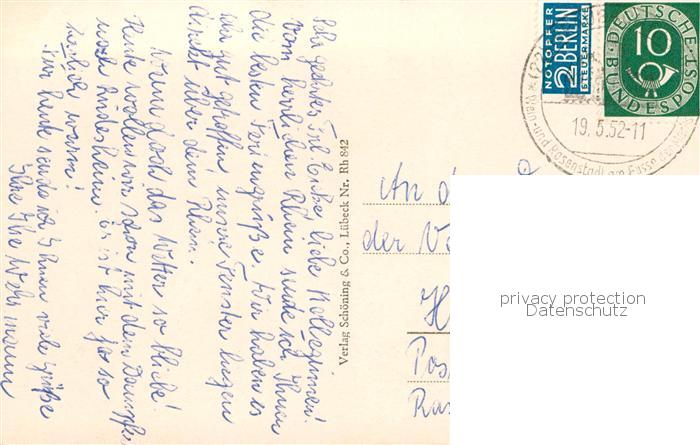 Sehr geehrtes Frl. Ecke, liebe Kolleginnen!
Vom herrlichen Rhein sende ich Ihnen
die besten Feriengrüße. Wir haben es
sehr gut getroffen, unsere Fenster liegen
direkt über dem Rhein.
Wenn doch das Wetter so bliebe!
Heute wollen wir schon mit dem Dampfer
nach Rüdesheim. Es ist hier ja so
herrlich warm!
Für heute sende ich Ihnen viele Grüße
Ihre Ilse Wehrmann
Verlag Schöning & Co., Lübeck Nr. Rh 842
NOTOPFER
2 BERLIN
STEUERMARKE
DEUTSCHE
BUNDESPOST
10
19.5.52-11
Wein- und Rosenstadt am Fusse des
An d
der V
H
Pos
Ras
privacy protection
Datenschutz